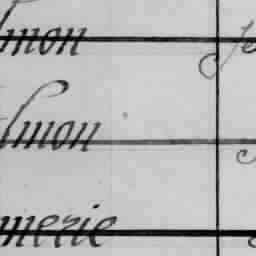 lmon Je
lmon
merie